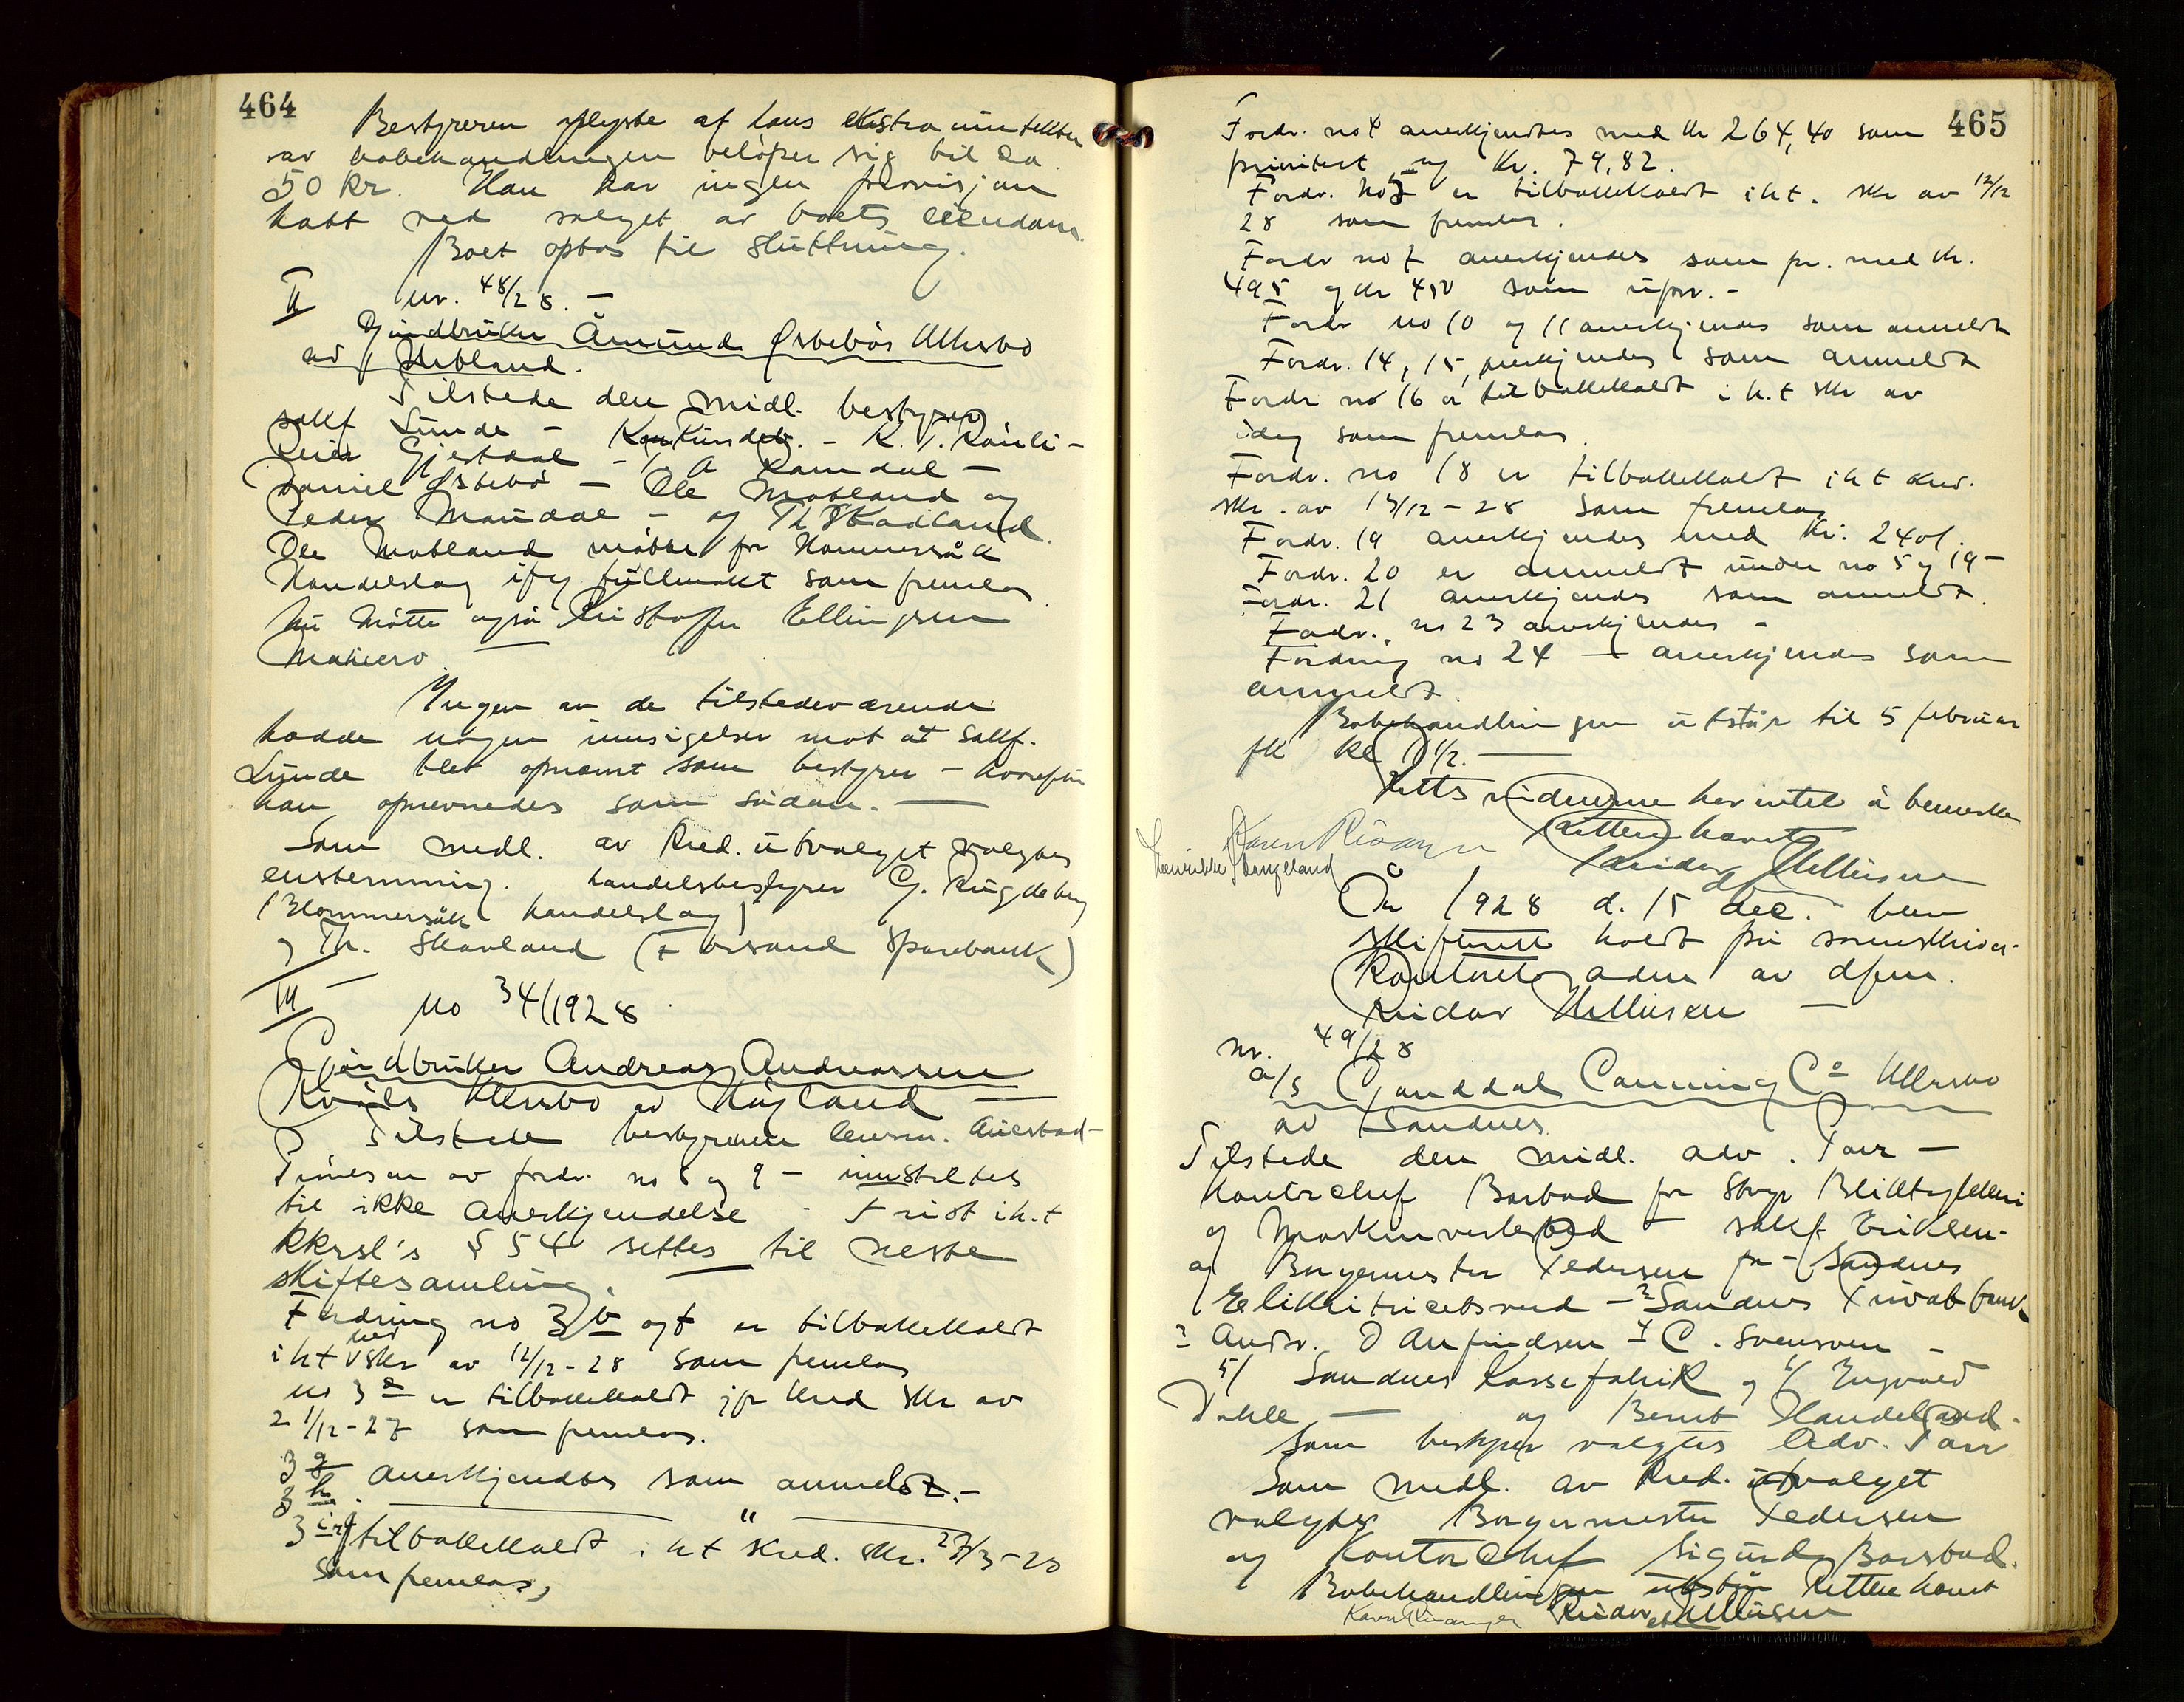 464
Bestyreren oplyste at hans ekstra inntekter
av bobehandlingen beløper sig til ca
50 kr. Han har ingen provisjon
hatt ved salget av boets eiendom
Boet optas til sluttning.
II nr. 48/28. –
Gårdbruker Åmund Østebøs konkursbo
av Helland.
Tilstede den midl. bestyrer
sakf Lunde – Konkursdeb. – K. T.
Peder Gjesdal – A Ramdal –
Daniel Østebø – Ole Mosland og
Peder Maudal – og Th Skadland
Ole Mosland møtte for Hommersåk
Handelslag ifg fullmakt som fremlas
Nu møtte også Kristoffer Ellingsen
Ingen av de tilstedeværende
hadde nogen innsigelser mot at Sakf.
Lunde blev opnevnt som bestyrer – hvorefter
han opnevnedes som sådan. –
Som medl. av Kred. utvalget valgtes
enstemmig handelsbestyrer G.
(Hommersåk handelslag)
og Th. Skavland (Forsand Sparebank)
III – no 34/1928
Gårdbruker Andreas Andreassen
Kvåls konkursbo av Høyland –
Tilstede bestyreren lensm. Auestad –
Prøvelsen av fordr. no 8 og 9 – innstiltes
til ikke anerkjendelse – Frist i h.t
kkrsl's § 54 settes til neste
skiftesamling. –
Fordring no 3 b og f er tilbakekaldt
i ht kred skr av 12/12-28 som fremlas
no 3 a er tilbakekaldt jfr kred skr av
21/12-27 som fremlas.
3 g anerkjendtes som anmeldt. –
3 h – " –
3 i tilbakekaldt i ht kred. skr. 27/3-28
som fremlas,
465
Fordr. no 4 anerkjendtes med kr 264,40 som
prioritert og kr. 79,82.
Fordr. no 5 er tilbakekaldt i h.t. skr av 12/12
28 som fremlas.
Fordr no 7 anerkjendes som pr. med kr.
495 og kr 450 som upri. –
Fordr no 10 og 11 anerkjendes som anmeldt
Fordr. 14, 15, anerkjendes som anmeldt
Fordr no 16 er tilbakekaldt i h.t skr av
idag som fremlas.
Fordr. no 18 er tilbakekaldt i h t kred.
skr. av 13/12-28 som fremlas
Fordr. 19 anerkjendes med kr. 2401.
Fordr. 20 er anmeldt under no 5 og 19 –
Fordr. 21 anerkjendes som anmeldt.
Fordr. no 23 anerkjendes –
Fordring no 24 – anerkjendes som
anmeldt.
Bobehandlingen utstår til 5 februar
fk kl 11 1/2. –
Rettsvidnerne har intet å bemerke
Retten hævet
Karen Risanger
Reidar Helliesen
Henrikke Skangeland
År 1928 d. 15 dec. blev
skifterett holdt på sorenskriver-
kontoret adm av dfm.
Reidar Helliesen –
nr. 49/28
a/s Ganddal Canning Co konkursbo
av Sandnes
Tilstede den midl. adv. –
Kontorchef Borsbod for Stvgr Bliktrykkeri
og Maskinverksted – sakf Eriksen –
og Borgermester Pedersen for 1 Sandnes
Elektricitetsverk – 2 Sandnes Privatbank
3 Andr. O Anfindsen 4 C. Svensen –
5/ Sandnes Kassefabrik og 6/ Engvald
Dahle – og Bernt Handeland.
Som bestyrer valgtes Adv.
Som medl. av Kred. utvalget
valgtes Borgermester Pedersen
og Kontorchef Sigurd Borsbod.
Bobehandlingen utstår Retten hævet
Karen Risanger Reidar Helliesen